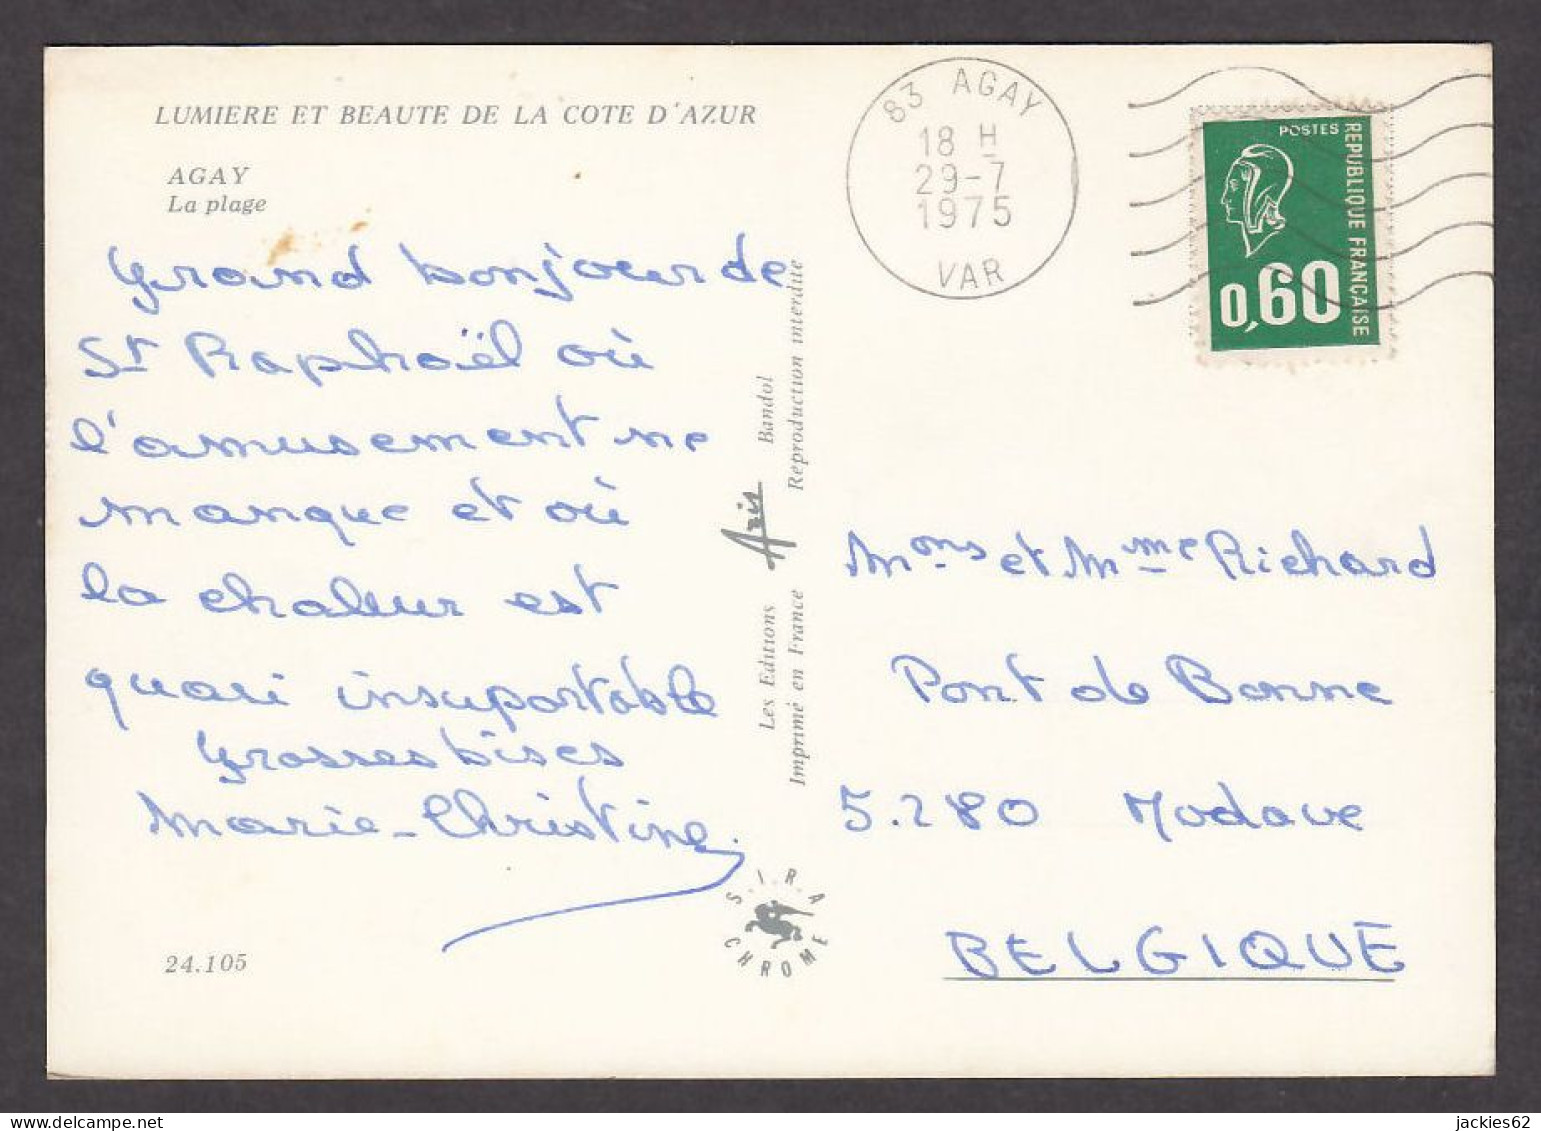 LUMIERE ET BEAUTE DE LA COTE D'AZUR
AGAY
La plage
Grand bonjour de
St Raphaël où
l'amusement ne
manque et où
la chaleur est
quasi insuportable
Grosses bises
Marie-Christine.
24.105
Les Editions Aris Bandol
Imprimé en France Reproduction interdite
S.I.R.A
CHROME
83 AGAY
18 H
29-7
1975
VAR
POSTES
REPUBLIQUE FRANÇAISE
0,60
Mons et Mme Richard
Pont de Bonne
5.280 Modave
BELGIQUE
jackies62